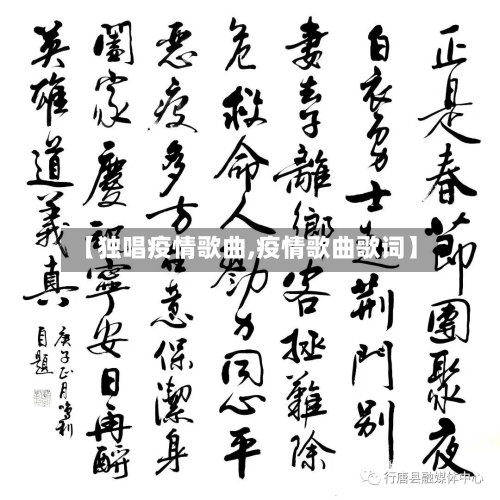 正是春節團聚夜
白衣勇士赴荆門别
妻弃子離鄉客拯難除
危救命人勠力同心平
惡疫多方在意保潔身
闔家慶祝寧安日再酹
英雄道義真
庚子正月
自題
【独唱疫情歌曲,疫情歌曲歌词】
行唐县融媒体中心